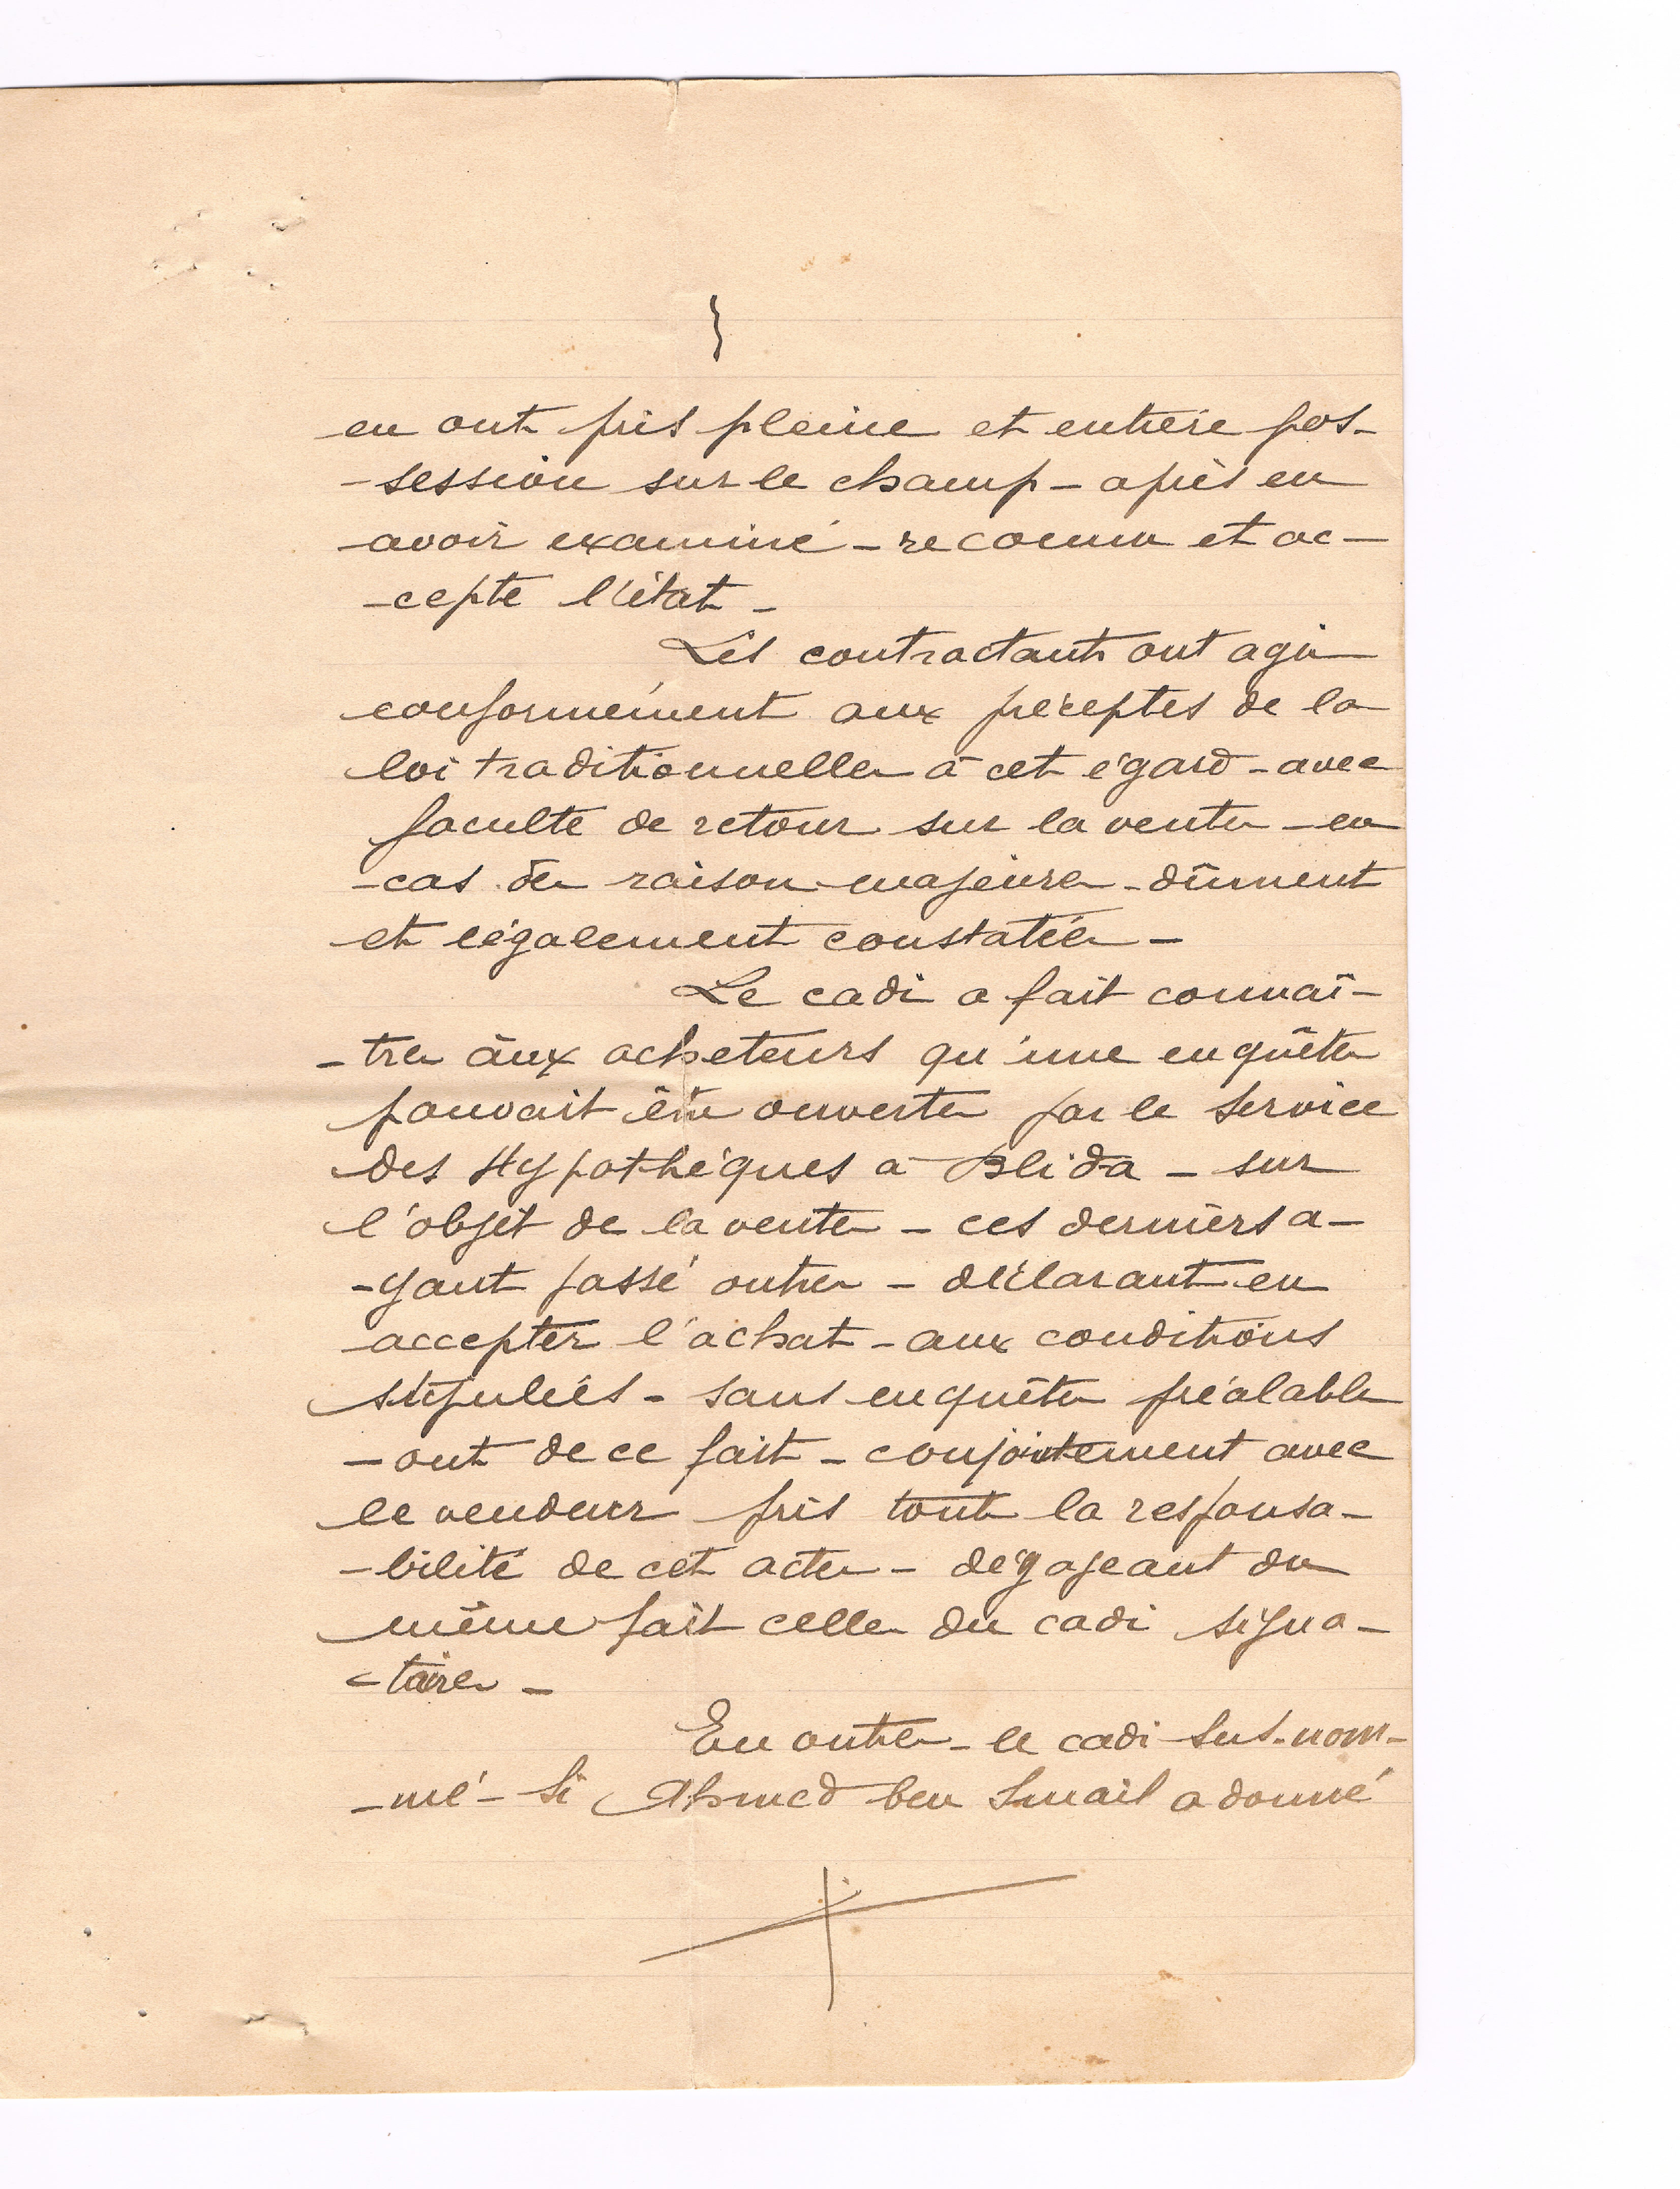 en ont pris pleine et entière pos-
-session sur le champ - après en
avoir examiné - reconnu et ac-
-cepté l'état -
Les contractants ont agi
conformément aux préceptes de la
loi traditionnelle à cet égard - avec
faculté de retour sur la vente - en
cas de raison majeure - dûment
et légalement constatée -
Le cadi a fait connaî-
-tre aux acheteurs qu'une enquête
pouvait être ouverte par le Service
des Hypothèques à Blida - sur
l'objet de la vente - ces derniers a-
-yant passé outre - déclarant en
accepter l'achat - aux conditions
stipulées - sans enquête préalable
- ont de ce fait - conjointement avec
le vendeur pris toute la responsa-
-bilité de cet acte - dégageant du
même fait celle du cadi signa-
-taire -
En outre - le cadi sus-nom-
-mé - Si Ahmed ben Smaïl a donné